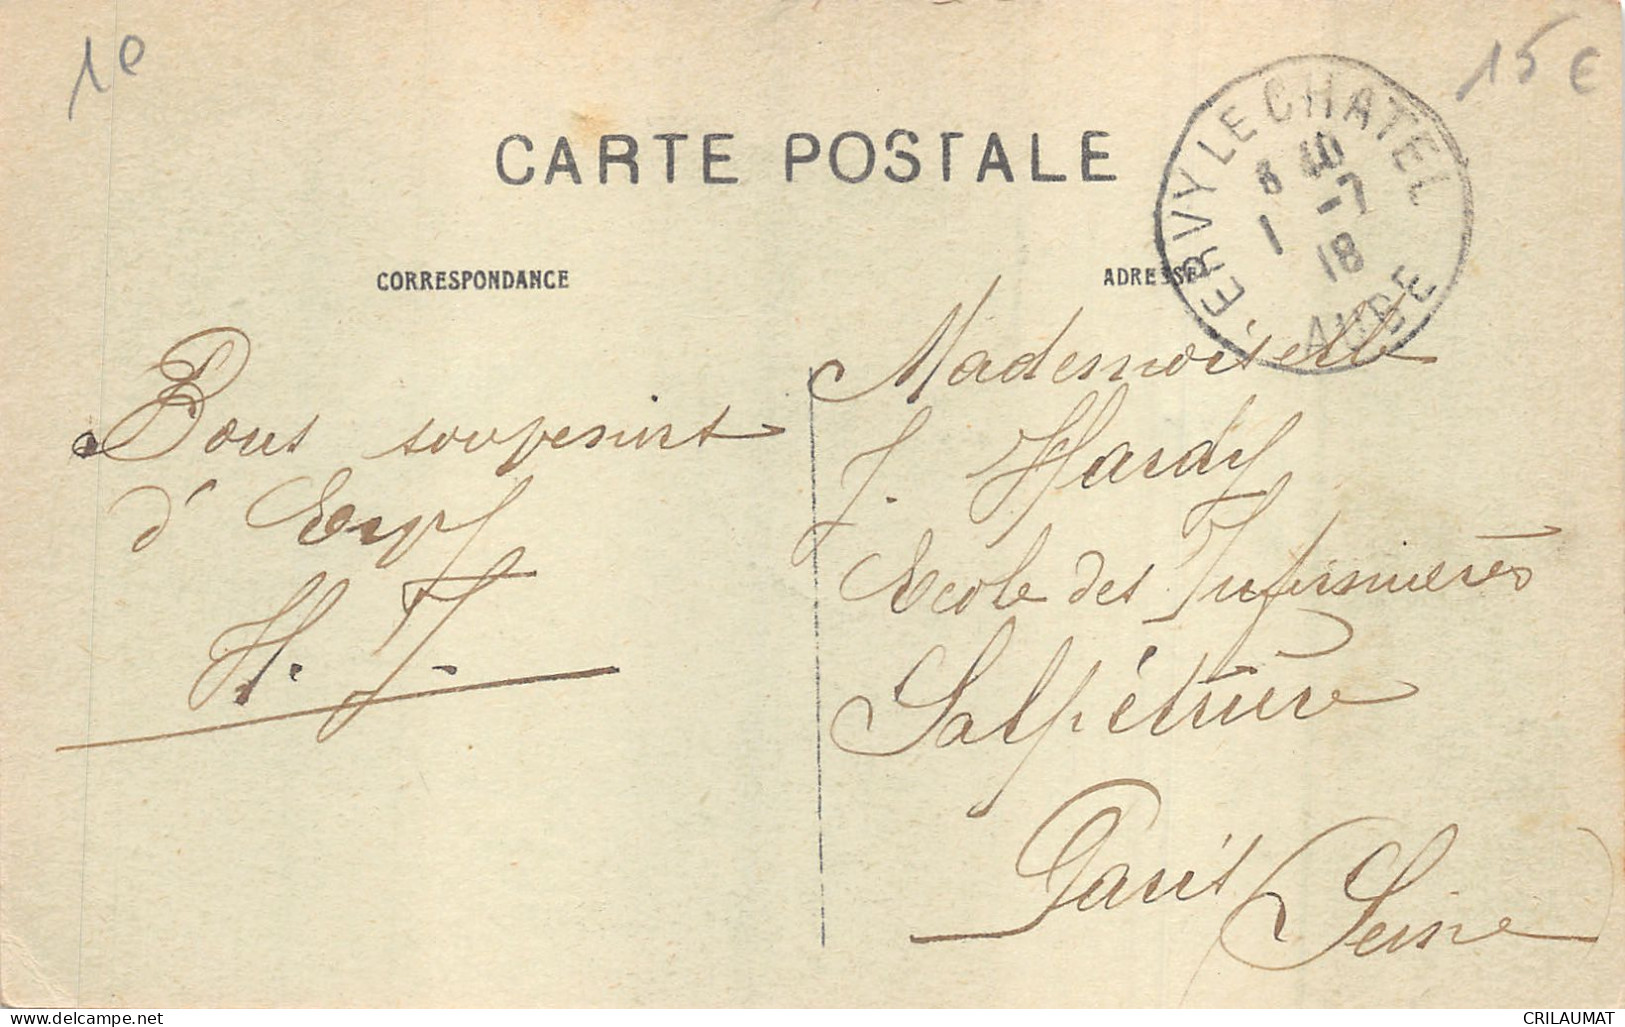 10
15 €
CARTE POSTALE
ERVY LE CHATEL
8 40
1 -7
18
AUBE
CORRESPONDANCE
ADRESSE
Bons souvenirs
d'Ervy
H. J.
Mademoiselle
J. Hardy
Ecole des Infirmières
Salpétrière
Paris (Seine)
Delcampe.net
CRILAUMAT